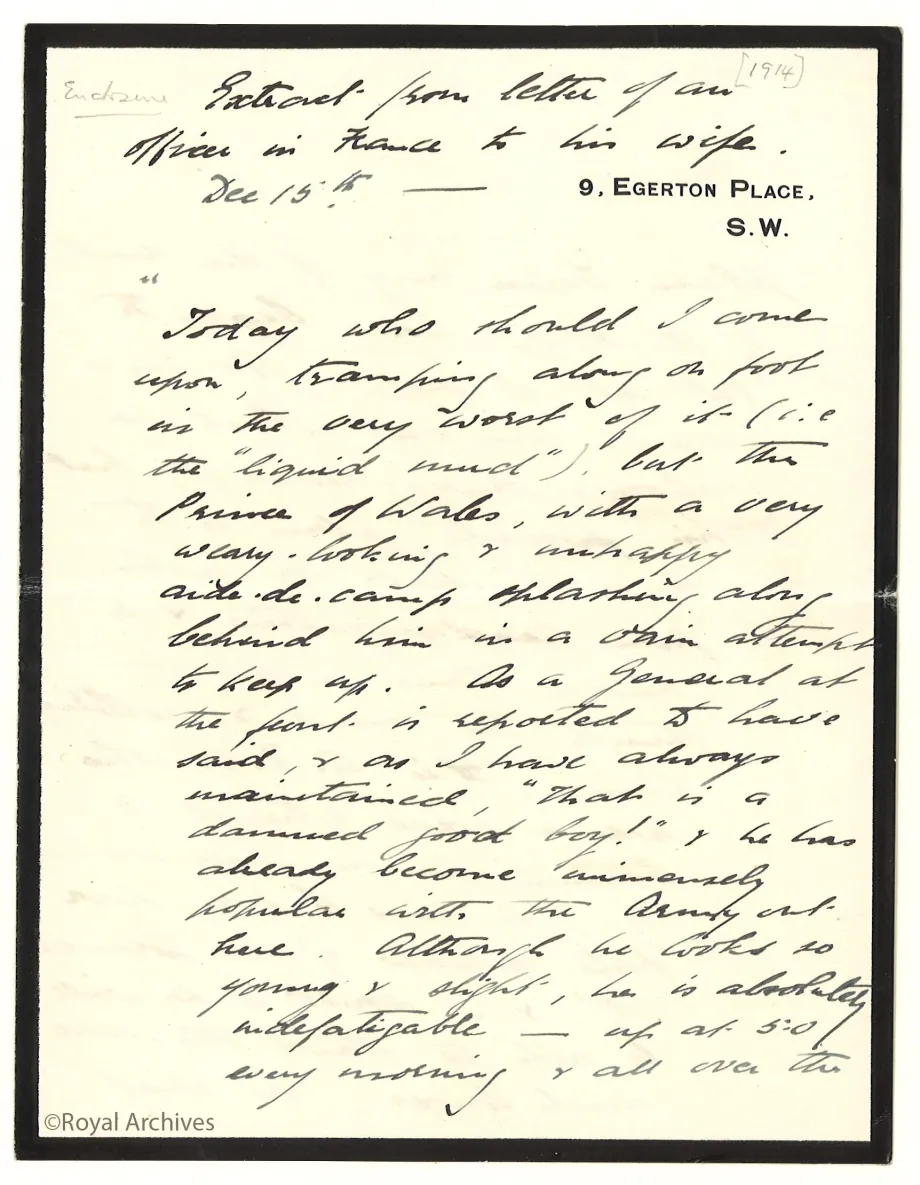 [1914]
Enclosure
Extract from letter of an
officer in France to his wife.
Dec 15th. —
9, EGERTON PLACE,
S.W.
"
Today who should I come
upon, tramping along on foot
in the very worst of it (i.e
the "liquid mud"), but the
Prince of Wales, with a very
weary-looking & unhappy
aide-de-camp splashing along
behind him in a vain attempt
to keep up. As a General at
the front is reported to have
said, & as I have always
maintained, "That is a
damned good boy!" & he has
already become immensely
popular with the Army out
here. Although he looks so
young & slight, he is absolutely
indefatigable — up at 5.0
every morning & all over the
©Royal Archives